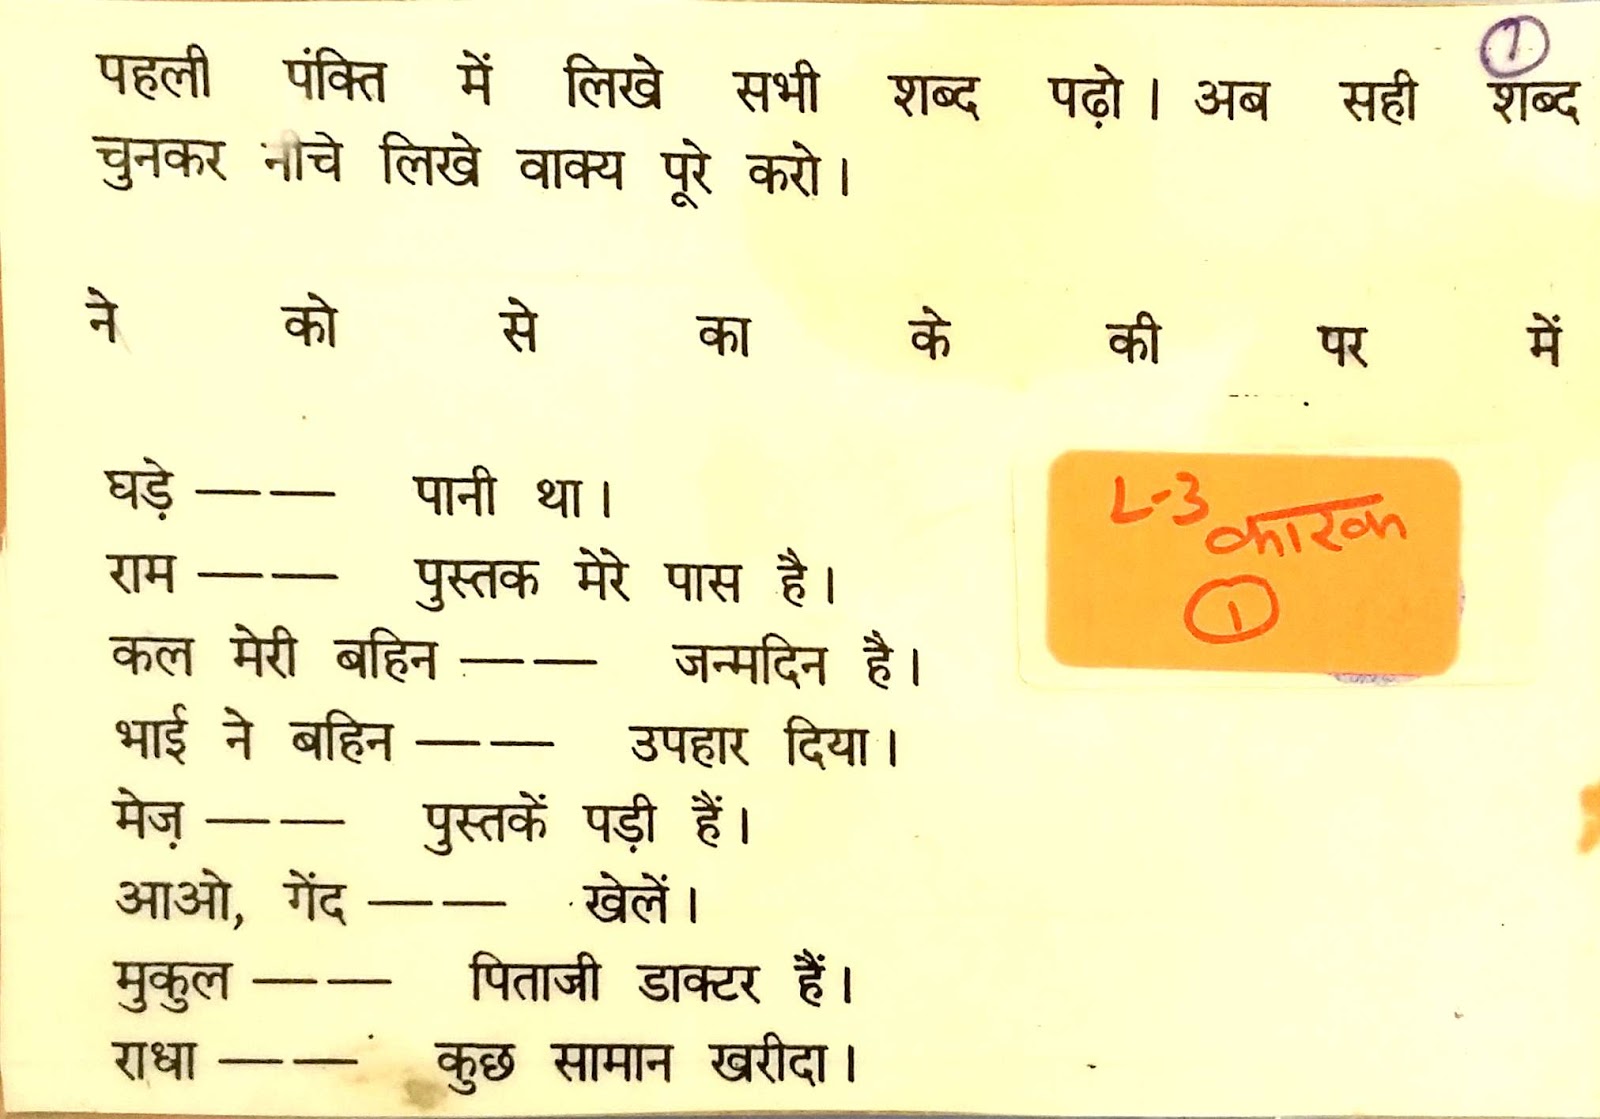 ①
पहली पंक्ति में लिखे सभी शब्द पढ़ो। अब सही शब्द
चुनकर नीचे लिखे वाक्य पूरे करो।
ने को से का के की पर में
घड़े —— पानी था।
राम —— पुस्तक मेरे पास है।
कल मेरी बहिन —— जन्मदिन है।
भाई ने बहिन —— उपहार दिया।
मेज़ —— पुस्तकें पड़ी हैं।
आओ, गेंद —— खेलें।
मुकुल —— पिताजी डाक्टर हैं।
राधा —— कुछ सामान खरीदा।
L-3
कारक
①